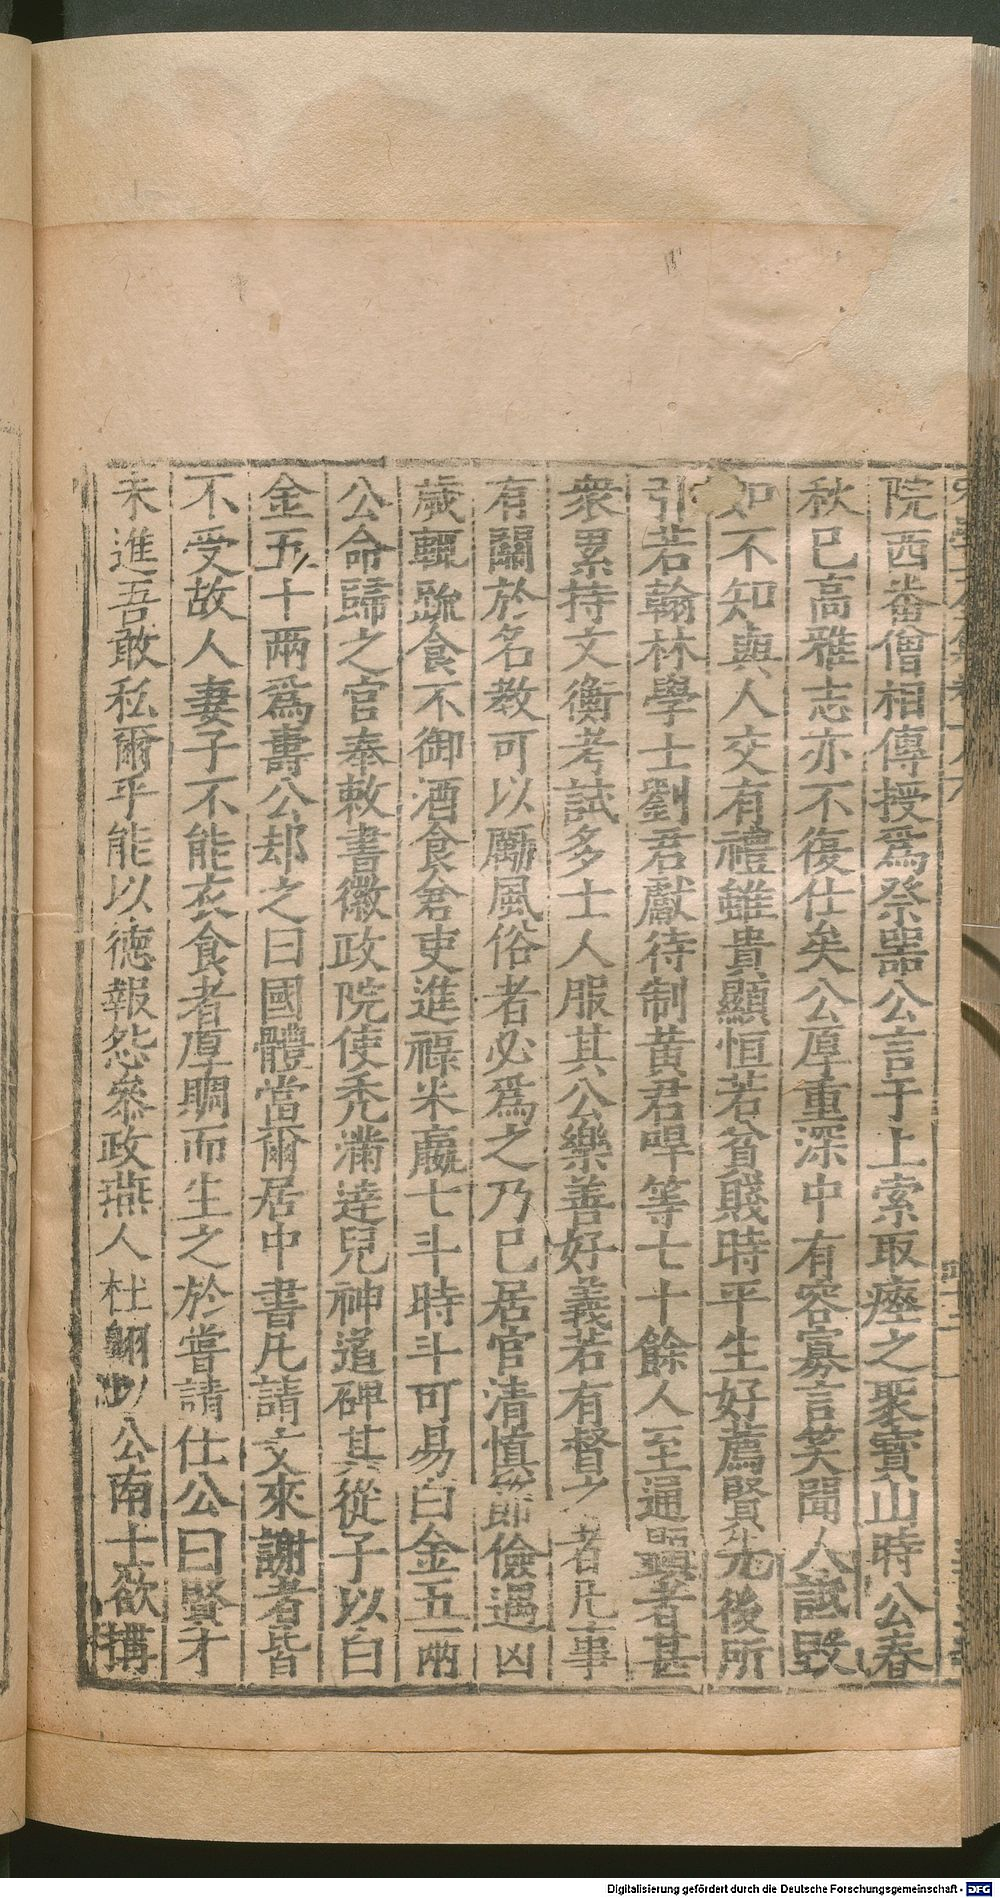 院西番僧相傳授爲祭器公言于上索取瘞之聚寶山時公春
秋已高雅志亦不復仕矣公厚重深中有容寡言笑聞人詆毀
如不知與人交有禮雖貴顯恒若貧賤時平生好薦賢先後所
引若翰林學士劉君獻待制黃君哻等七十餘人至通顯者甚
衆累持文衡考試多士人服其公樂善好義若有督之者凡事
有關於名敎可以勵風俗者必爲之乃已居官清慎節儉遇凶
歲輒蔬食不御酒食倉吏進祿米嬴七斗時斗可易白金五兩
公命歸之官奉敕書徽政院使禿滿逹兒神道碑其從子以白
金五十兩爲壽公却之曰國體當爾居中書凡請文來謝者皆
不受故人妻子不能衣食者厚賙而生之於嘗請仕公曰賢才
未進吾敢私爾乎能以德報怨叅政燕人杜翺以公南士欲搆
Digitalisierung gefördert durch die Deutsche Forschungsgemeinschaft - DFG